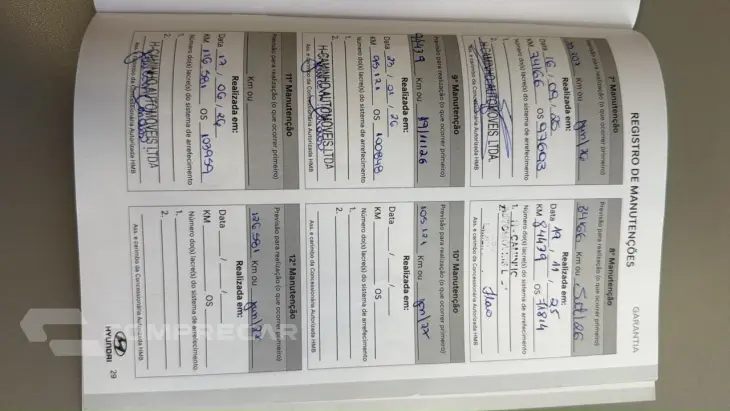 REGISTRO DE MANUTENÇÕES
GARANTIA
7ª Manutenção
Previsão para realização (o que ocorrer primeiro)
Km ou
Realizada em:
Data 16 / 06 / 25
KM 74166 OS
Número do(s) lacre(s) do sistema de arrefecimento
1.
2.
H-CAMINHO AUTOMÓVEIS LTDA
Ass. e carimbo da Concessionária Autorizada HMB
8ª Manutenção
Previsão para realização (o que ocorrer primeiro)
84166 Km ou
Realizada em:
Data 19 / 11 / 25
KM 84479 OS
Número do(s) lacre(s) do sistema de arrefecimento
1.
2.
Ass. e carimbo da Concessionária Autorizada HMB
9ª Manutenção
Previsão para realização (o que ocorrer primeiro)
94479 Km ou 19/11/26
Realizada em:
Data 23 / 01 / 26
KM 95121 OS 100848
Número do(s) lacre(s) do sistema de arrefecimento
1.
2.
H-CAMINHO AUTOMÓVEIS LTDA
Ass. e carimbo da Concessionária Autorizada HMB
10ª Manutenção
Previsão para realização (o que ocorrer primeiro)
105121 Km ou jan/27
Realizada em:
Data / /
KM OS
Número do(s) lacre(s) do sistema de arrefecimento
1.
2.
Ass. e carimbo da Concessionária Autorizada HMB
11ª Manutenção
Previsão para realização (o que ocorrer primeiro)
Km ou
Realizada em:
Data 17 / 06 / 26
KM 116581 OS 103959
Número do(s) lacre(s) do sistema de arrefecimento
1.
2.
H-CAMINHO AUTOMÓVEIS LTDA
Ass. e carimbo da Concessionária Autorizada HMB
12ª Manutenção
Previsão para realização (o que ocorrer primeiro)
126581 Km ou jun/27
Realizada em:
Data / /
KM OS
Número do(s) lacre(s) do sistema de arrefecimento
1.
2.
Ass. e carimbo da Concessionária Autorizada HMB
HYUNDAI 29
COMPRECAR